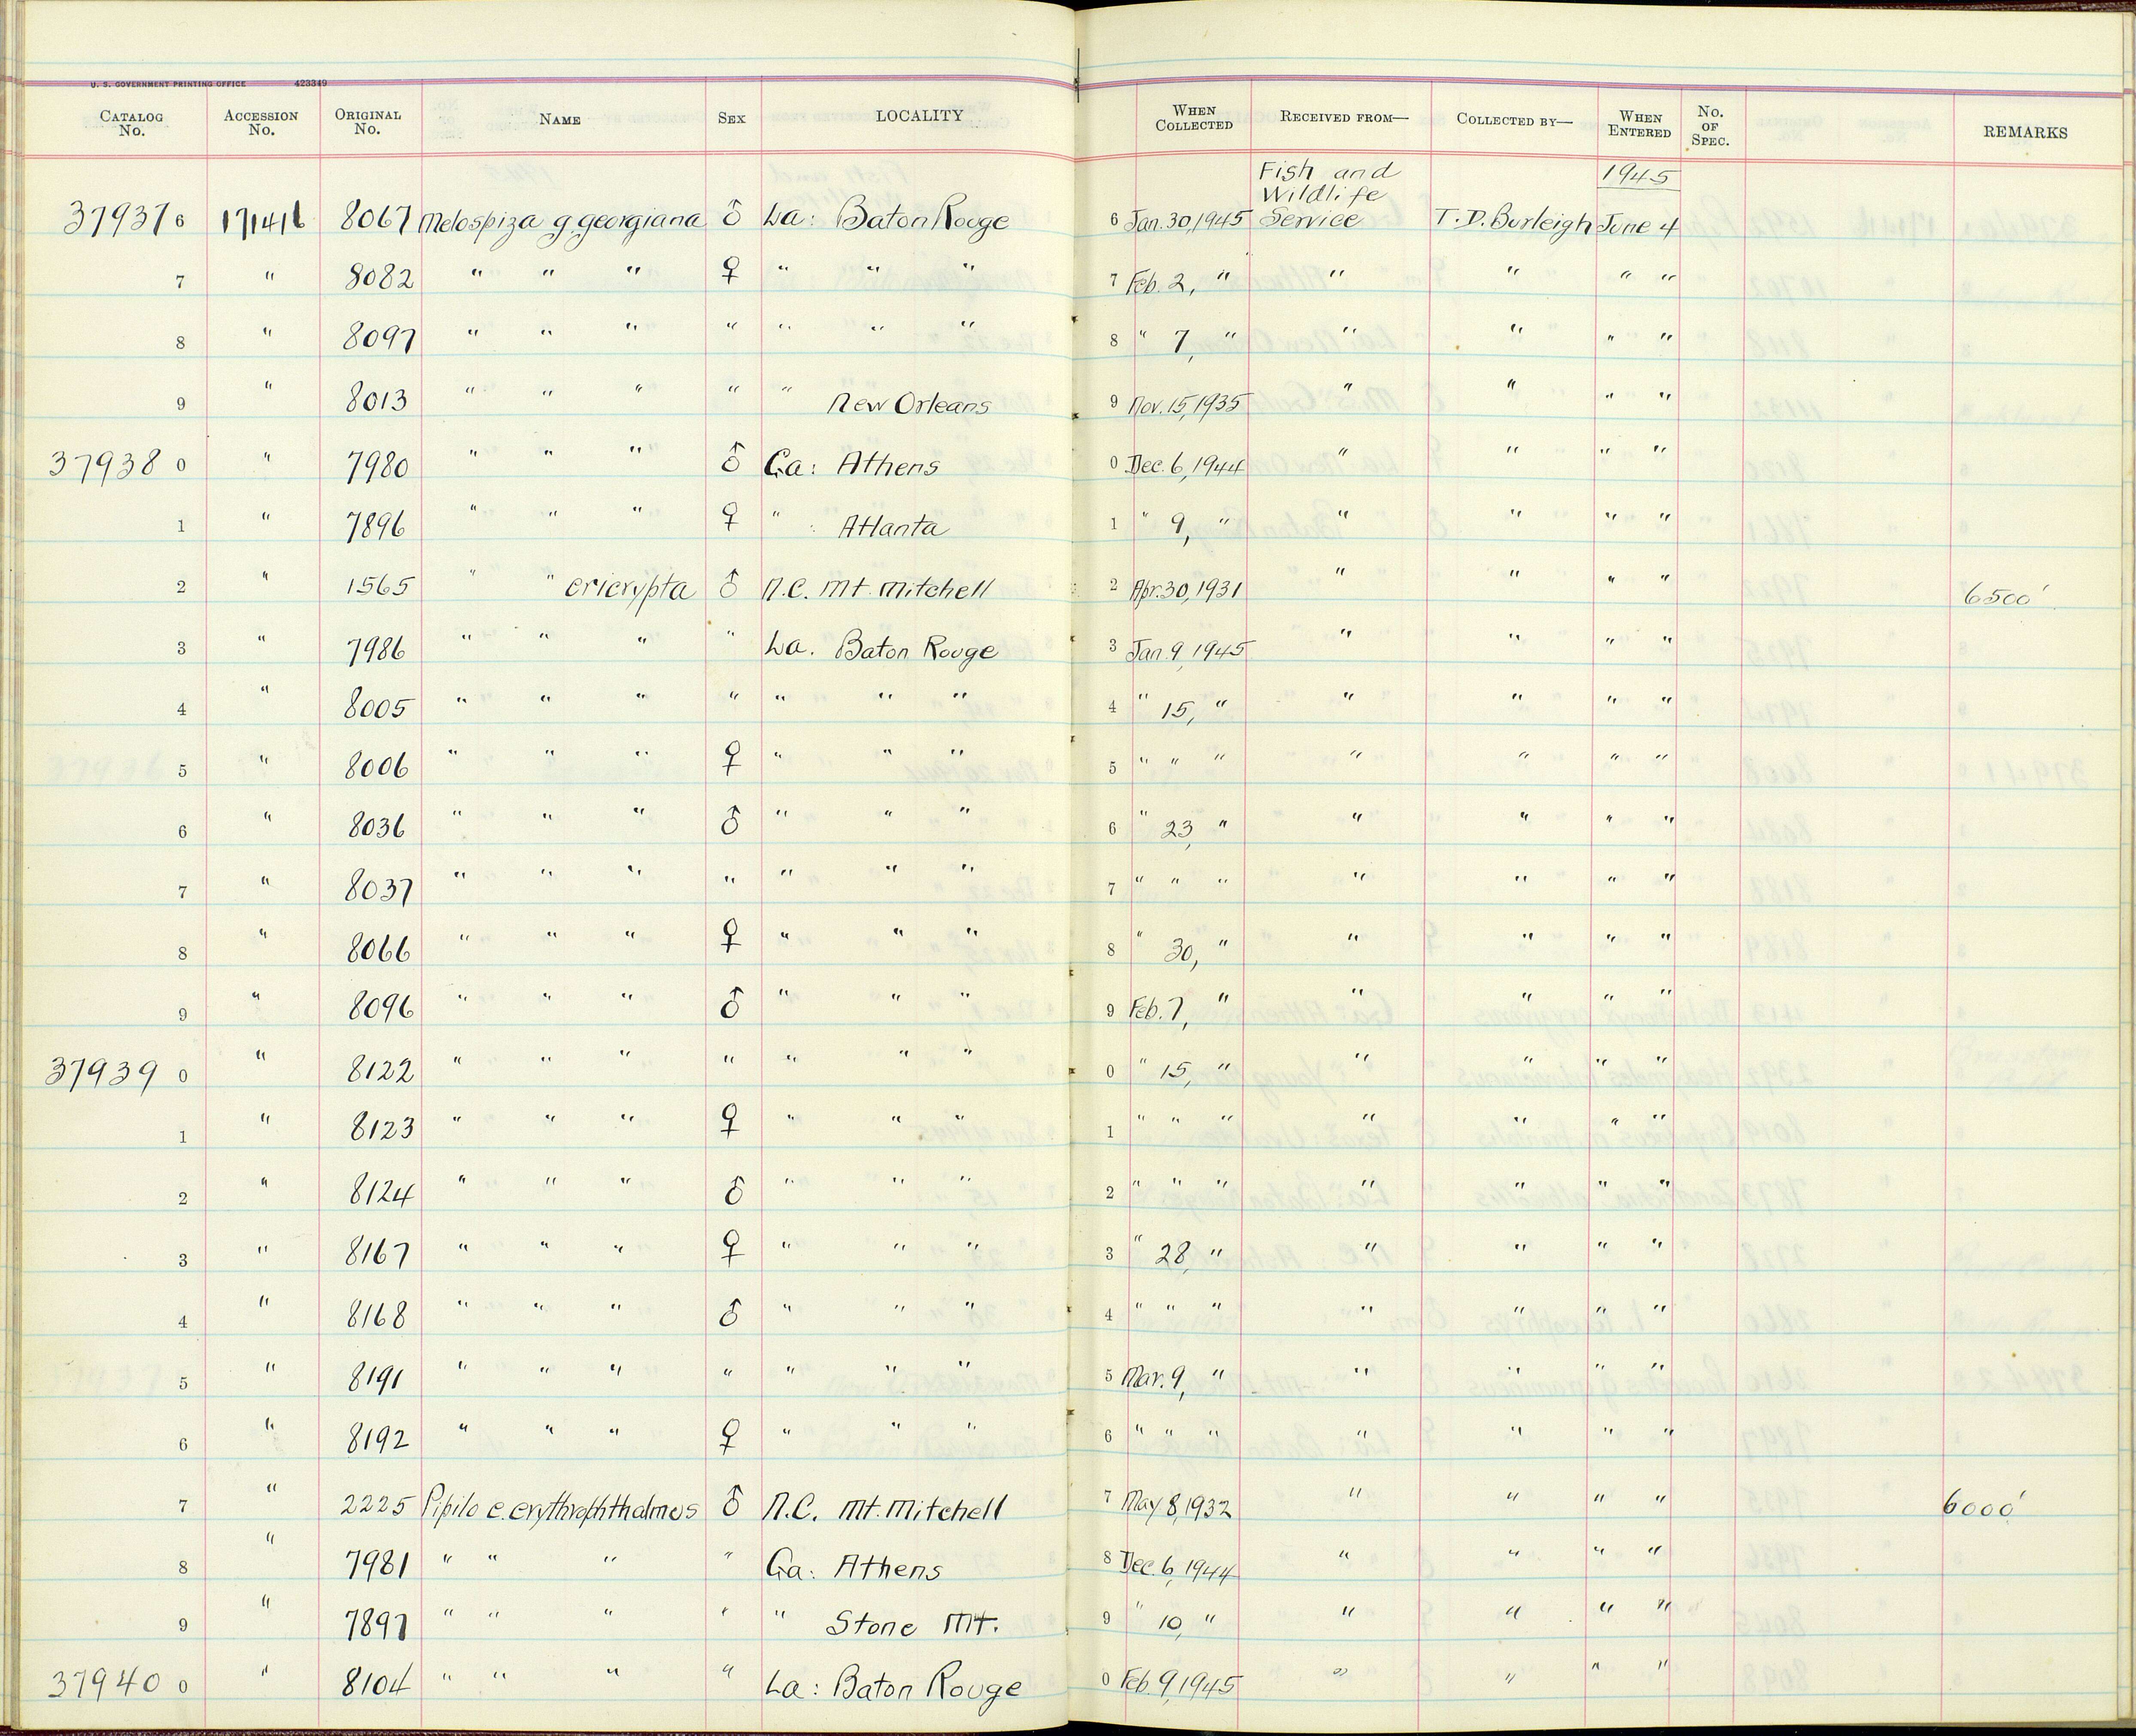 U. S. GOVERNMENT PRINTING OFFICE 423349
CATALOG No. ACCESSION No. ORIGINAL No. NAME SEX LOCALITY WHEN COLLECTED RECEIVED FROM— COLLECTED BY— WHEN ENTERED No. OF SPEC. REMARKS
Fish and 1945
Wildlife
37937 6 171416 8067 Melospiza g. georgiana ♂ La: Baton Rouge 6 Jan. 30, 1945 Service T. D. Burleigh June 4
7 " 8082 " " " ♀ " " " 7 Feb. 2, " " " " "
8 " 8097 " " " " " " " 8 " 7, " " " " "
9 " 8013 " " " " " New Orleans 9 Nov. 15, 1935 " " " "
37938 0 " 7980 " " " ♂ Ga: Athens 0 Dec. 6, 1944 " " " "
1 " 7896 " " " ♀ " Atlanta 1 " 9, " " " " "
2 " 1565 " " ericrypta ♂ N.C. Mt. Mitchell 2 Apr. 30, 1931 " " " " 6500'
3 " 7986 " " " " La. Baton Rouge 3 Jan. 9, 1945 " " " "
4 " 8005 " " " " " " " 4 " 15, " " " " "
5 " 8006 " " " ♀ " " " 5 " " " " " " "
6 " 8036 " " " ♂ " " " 6 " 23, " " " " "
7 " 8037 " " " " " " " 7 " " " " " " "
8 " 8066 " " " ♀ " " " 8 " 30, " " " " "
9 " 8096 " " " ♂ " " " 9 Feb. 7, " " " " "
37939 0 " 8122 " " " " " " " 0 " 15, " " " " "
1 " 8123 " " " ♀ " " " 1 " " " " " " "
2 " 8124 " " " ♂ " " " 2 " " " " " " "
3 " 8167 " " " ♀ " " " 3 " 28, " " " " "
4 " 8168 " " " ♂ " " " 4 " " " " " " "
5 " 8191 " " " " " " " 5 Mar. 9, " " " " "
6 " 8192 " " " ♀ " " " 6 " " " " " " "
7 " 2225 Pipilo e. erythrophthalmus ♂ N.C. Mt. Mitchell 7 May 8, 1932 " " " " 6000'
8 " 7981 " " " " Ga: Athens 8 Dec. 6, 1944 " " " "
9 " 7897 " " " " " Stone Mt. 9 " 10, " " " " "
37940 0 " 8104 " " " " La: Baton Rouge 0 Feb. 9, 1945 " " " "